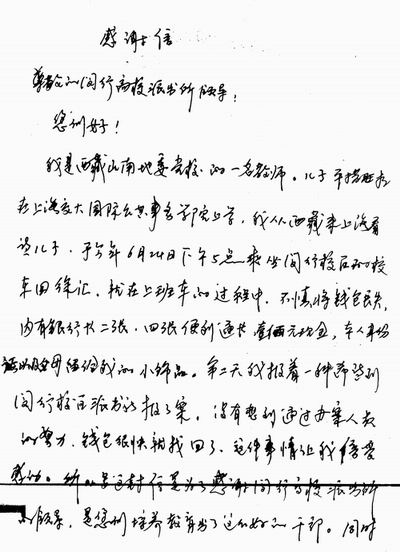 感谢信
尊敬的闵行高校派出所领导：
您们好！
我是西藏山南地委党校的一名教师。儿子
在上海交大国际公共事务学院上学，我从西藏来上海看
儿子，于今年6月24日下午5点乘坐闵行校区的校
车回徐汇，就在上班车的过程中，不慎将钱包丢失，
内有银行卡二张，四张便利通卡 元现金，本人身份
证 我的小饰品。第二天我报着一种希望到
闵行校区派出所报了案，没有想到通过办案人员
的努力，钱包很快就找回了，这件事情让我倍受
感动。所以写这封信是为了感谢闵行高校派出所
的领导，是您们培养教育出了这么好的干部。同时